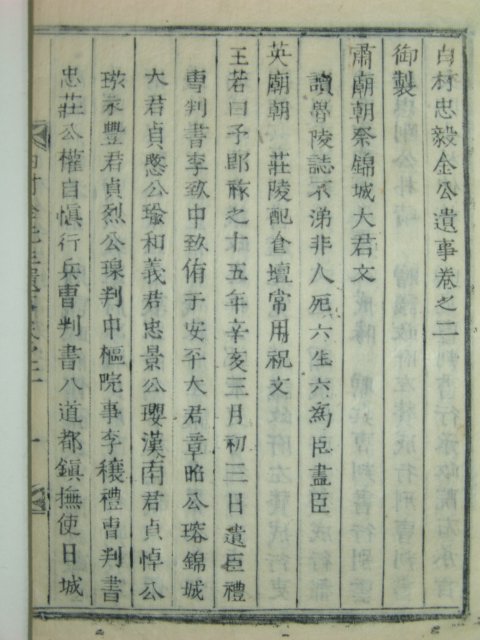 白村忠毅金公遺事卷之二
御製
肅廟朝祭錦城大君文
讀魯陵誌不涕非人死六生六爲臣盡臣
英廟朝 莊陵配食壇常用祝文
王若曰予卽祚之十五年辛亥三月初三日遣臣禮
曹判書李致中致侑于安平大君章昭公瑢錦城
大君貞愍公瑜和義君忠景公瓔漢南君貞悼公
𤥽永豐君貞烈公瑔判中樞院事李穰禮曹判書
忠莊公權自愼行兵曹判書八道都鎭撫使日城